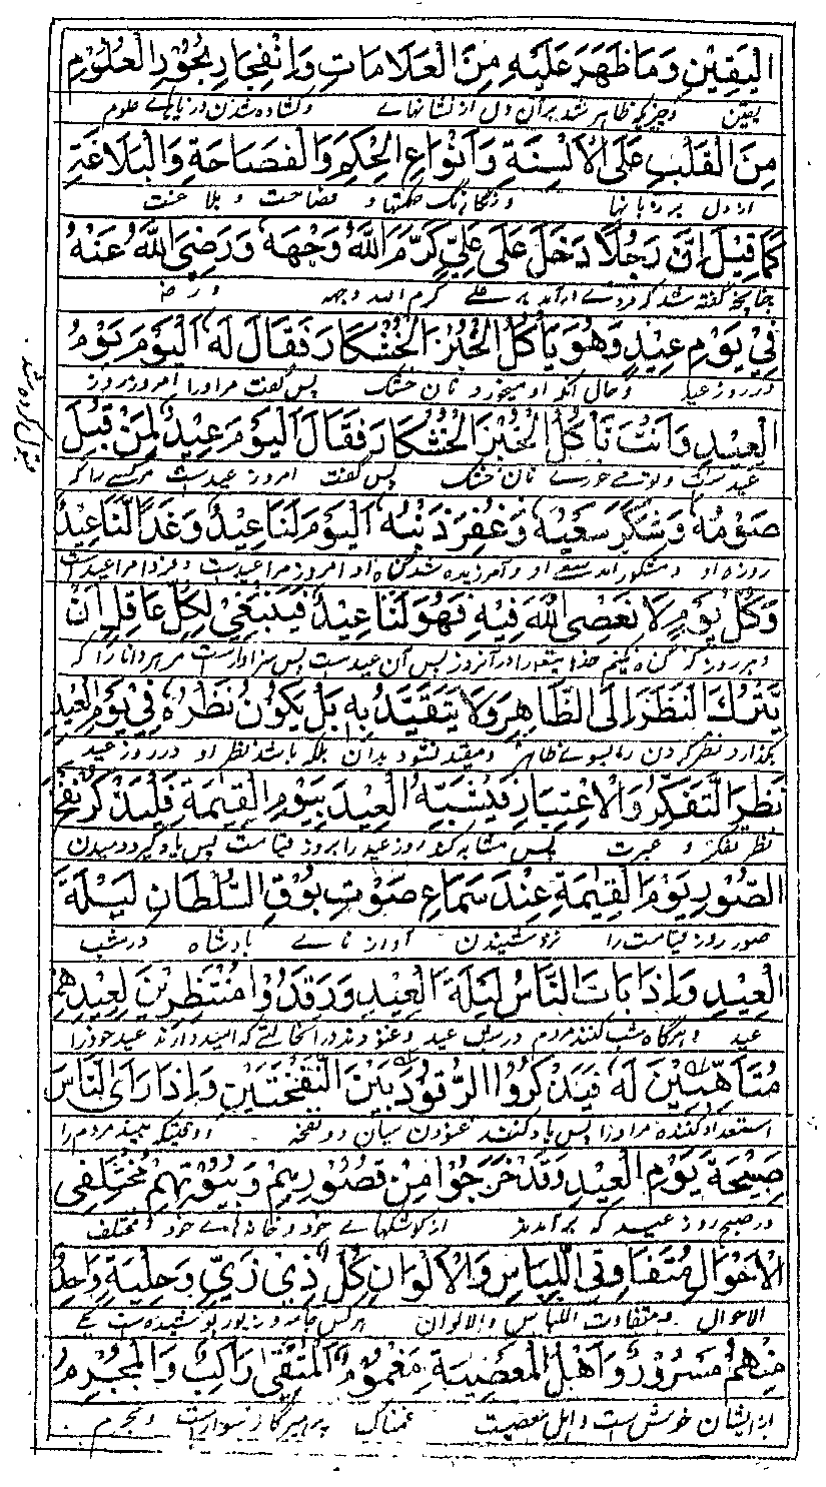 الْيَقِيْنِ وَمَا ظَهَرَ عَلَيْهِ مِنَ الْعَلَامَاتِ وَانْفِجَارِ بُحُوْرِ الْعُلُوْمِ
یقین وچیزیکه ظاهر شد بر آن دل از نشانهاے وکشاده شدن دریاهاے علوم
مِنَ الْقَلْبِ عَلَى الْاَلْسِنَةِ وَاَنْوَاعِ الْحِكَمِ وَالْفَصَاحَةِ وَالْبَلَاغَةِ
از دل بر زبانها و حکمتها و فصاحت و بلاغت
كَمَا قِيْلَ اِنَّ رَجُلًا دَخَلَ عَلٰى عَلِيٍّ كَرَّمَ اللّٰهُ وَجْهَهٗ وَرَضِيَ اللّٰهُ عَنْهُ
چنانچه گفته شد که مردے در آمد بر علے کرم الله وجهه و رض
فِيْ يَوْمِ عِيْدٍ وَهُوَ يَأْكُلُ الْخُبْزَ الْخُشْكَارَ فَقَالَ لَهٗ اَلْيَوْمَ يَوْمُ
در روز عید وحال آنکه او میخورد نان خشک پس گفت مر او را امروز روز
الْعِيْدِ وَاَنْتَ تَأْكُلُ الْخُبْزَ الْخُشْكَارَ فَقَالَ اَلْيَوْمَ عِيْدٌ لِمَنْ قُبِلَ
عید ست وتو مے خورے نان خشک پس گفت امروز عید ست مر کسے را که
قبول کرده شد
صَوْمُهٗ وَشُكِرَ سَعْيُهٗ وَغُفِرَ ذَنْبُهٗ اَلْيَوْمَ لَنَا عِيْدٌ وَغَدًا لَنَا عِيْدٌ
روزه او و مشکور شد سعے او و آمرزیده شد گناه او امروز مرا عیدست و فردا مرا عیدست
وَكُلُّ يَوْمٍ لَا نَعْصِى اللّٰهَ فِيْهِ فَهُوَ لَنَا عِيْدٌ فَيَنْبَغِيْ لِكُلِّ عَاقِلٍ اَنْ
وهر روز که گناه نکنیم خداے تعالی را در آنروز پس آن عید ست پس سزاوار ست مر هر دانا را که
يَّتْرُكَ النَّظَرَ اِلَى الظَّاهِرِ وَلَا يَتَقَيَّدُ بِهٖ بَلْ يَكُوْنُ نَظْرُهٗ فِيْ يَوْمِ الْعِيْدِ
بگذارد نظر کردن را بسوے ظاهر ومقید نشود بدان بلکه باشد نظر او در روز عید
نَظَرَ التَّفَكُّرِ وَالْاِعْتِبَارِ فَيُشَبِّهُ الْعِيْدَ بِيَوْمِ الْقِيٰمَةِ فَلْيَذْكُرْ نَفْخَ
نظر تفکر و عبرت پس مشابه کند روز عید را بروز قیامت پس یاد گیرد دمیدن
الصُّوْرِ يَوْمَ الْقِيٰمَةِ عِنْدَ سَمَاعِ صَوْتِ بُوْقِ السُّلْطَانِ لَيْلَةَ
صور روز قیامت را نزد شنیدن آواز نائے بادشاه در شب
الْعِيْدِ وَاِذَا بَاتَ النَّاسُ لَيْلَةَ الْعِيْدِ وَرَقَدُوْا مُنْتَظِرِيْنَ لِعِيْدِهِمْ
عید وهرگاه شب کنند مردم در شب عید و غنودند در انحالتے که امید دارند عید خود را
مُتَأَهِّبِيْنَ لَهٗ فَيَذْكُرُوا الرُّقُوْدَ بَيْنَ النَّفْخَتَيْنِ وَاِذَا رَاَى النَّاسَ
استعداد کننده مر او را پس یاد کنند غنودن میان دو نفخه و وقتیکه بیند مردم را
صَبِيْحَةَ يَوْمِ الْعِيْدِ وَقَدْ خَرَجُوْا مِنْ قُصُوْرِهِمْ وَبُيُوْتِهِمْ مُخْتَلِفِى
در صبح روز عید که بر آمدند از کوشکهاے خود و خانه هاے خود مختلف
الْاَحْوَالِ مُتَفَاوِتِى اللِّبَاسِ وَالْاَلْوَانِ كُلُّ ذِيْ زِيٍّ وَحِلْيَةٍ وَاحِدٌ
الاحوال و متفاوت اللباس والالوان هر کس جامه و زیور پوشیده ست یکے
مِنْهُمْ مَسْرُوْرٌ وَاَهْلُ الْمَعْصِيَةِ مَغْمُوْمٌ اَلْمُتَّقِىْ رَاكِبٌ وَالْمُجْرِمُ
از ایشان خوش است و اهل معصیت غمناک پرهیزگار سوار است ومجرم